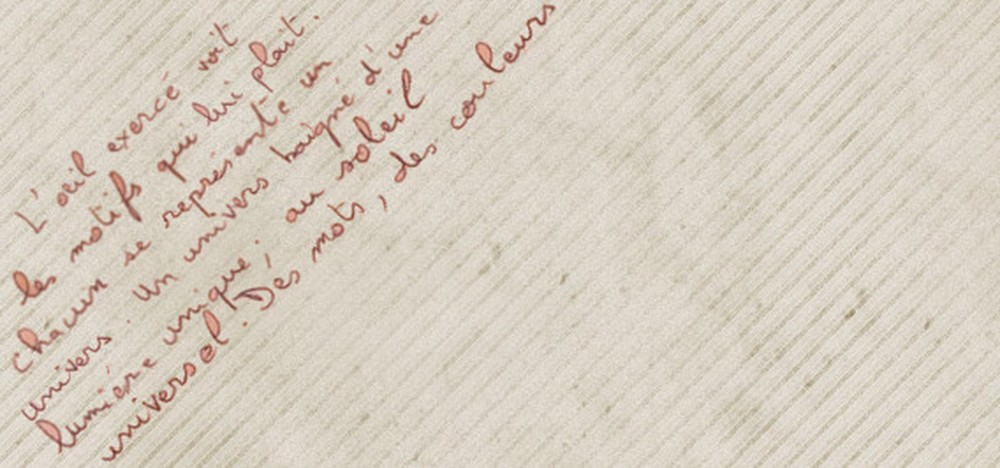 L'oeil exercé voit
les motifs qui lui plait.
Chacun se représente un
univers. Un univers baigné d'une
lumière unique, au soleil
universel. Des mots, des couleurs